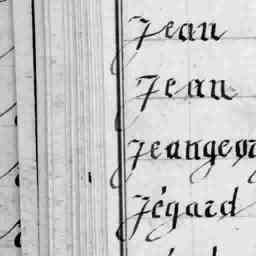 Jean
Jean
Jeangeor
Jégard